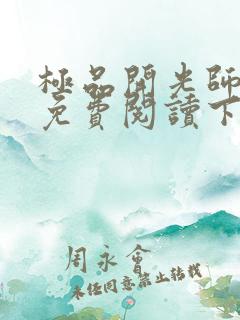 極品開光師
免費閱讀下
周永會
未经同意禁止转载